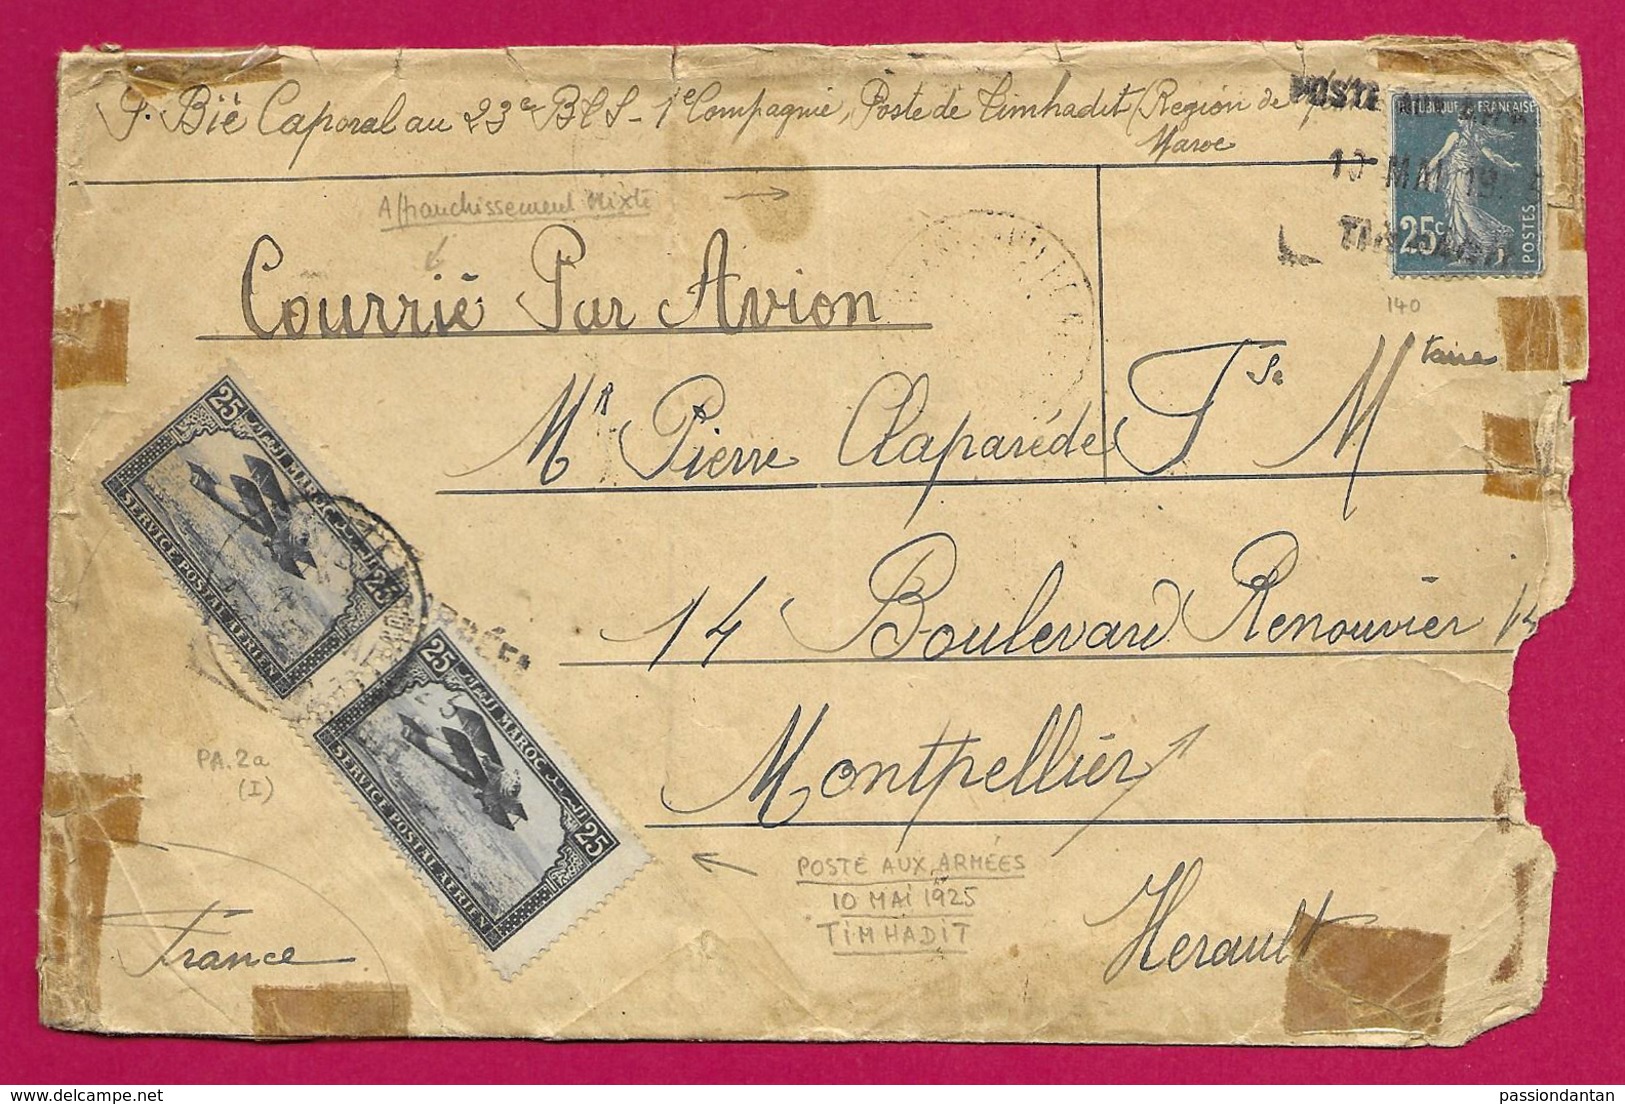 P. Bié Caporal au 23e BCS - 1e Compagnie, Poste de Timhadit (Région de
Maroc
POSTE AUX ARM
10 MAI 19
TIMHADIT
REPUBLIQUE FRANÇAISE
25c
POSTES
140
Affranchissement Mixte
Courrié Par Avion
Mr Pierre Claparéde Tse Mtaire
14 Boulevard Renouvier 14
Montpellier
Herault
France
25 MAROC 25
SERVICE POSTAL AÉRIEN
25 MAROC 25
SERVICE POSTAL AÉRIEN
PA.2a
(I)
POSTE AUX ARMÉES
10 MAI 1925
TIMHADIT
passiondantan